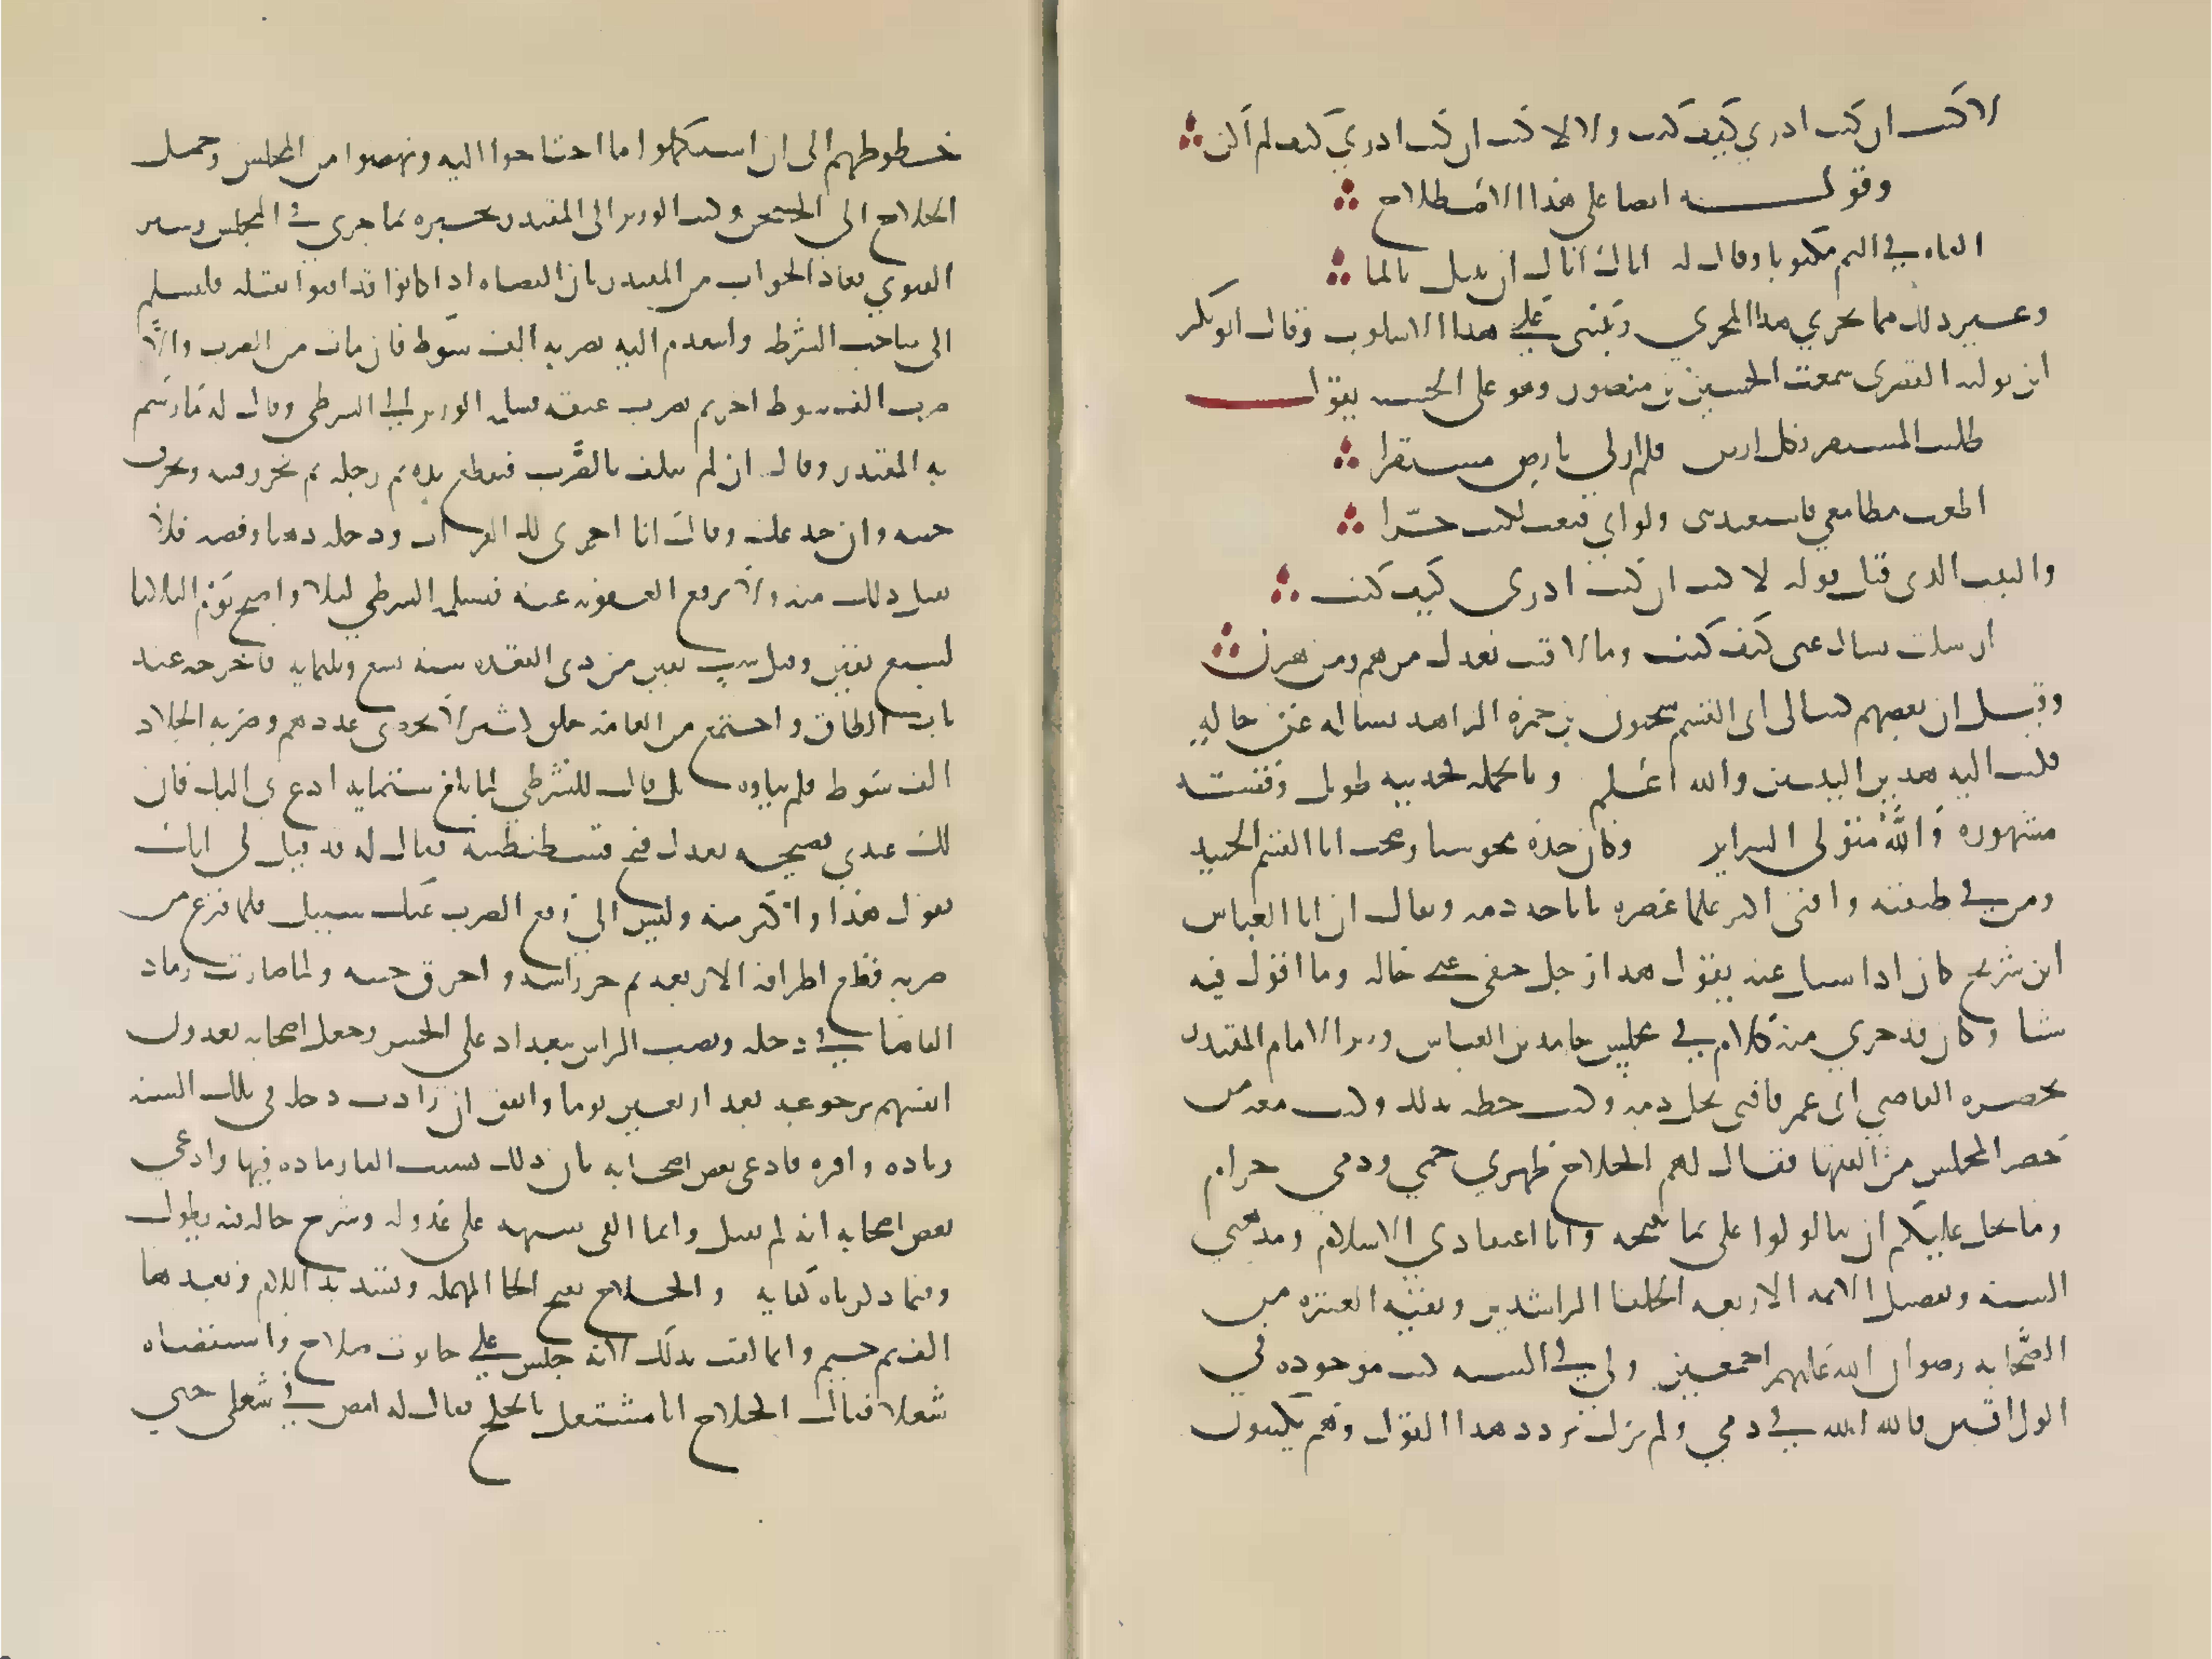 لا كنت ان كنت ادري كيف كنت ولا لا كنت ان كنت ادري كيف لم اكن
وقوله ايضا على هذا الاصطلاح
القاه في اليم مكتوبا وقال له اياك اياك ان تبتل بالما
وغير ذلك مما يجري هذا المجرى ويبنى على هذا الاسلوب وقال ابو بكر
ابن بوله القصرى سمعت الحسين بن منصور وهو على الخشبه يقول
طلبت المستقر بكل ارض فلم ار لي بارض مستقرا
اطعت مطامعي فاستعبدتني ولو اني قنعت لكنت حرّا
والبيت الذي قبل قوله لا كنت ان كنت ادري كيف كنت
ارسلت تسال عني كيف كنت وما لاقيت بعدك من هم ومن حزن
وقيل ان بعضهم كتب الى ابي القسم سمنون بن حمزه الزاهد يساله عن حاله
فكتب اليه هذين البيتين والله اعلم وبالجمله فحديثه طويل وقصته
مشهوره والله متولى السراير وكان جده مجوسيا وصحب ابا القسم الجنيد
ومن في طبقته وافتى اكثر علما عصره باباحه دمه ويقال ان ابا العباس
ابن شريح كان اذا سيل عنه يقول هذا رجل خفي على حاله وما اقول فيه
شيا وكان قد جرى منه كلام في مجلس حامد بن العباس وزير الامام المقتدر
بحضره القاضي ابي عمر فافتى بحل دمه وكتب خطه بذلك وكتب معه من
حضر المجلس من الفقها فقال لهم الحلاج ظهري حمي ودمي حرام
وما يحل عليكم ان تتاولوا على بما يبيحه وانا اعتقادي الاسلام ومذهبي
السنه وتفضيل الايمه الاربعه الخلفا الراشدين وبقيه العشره من
الصّحابه رضوان الله عليهم اجمعين ولي في السنه كتب موجوده في
الوراقين فالله الله في دمي ولم يزل يردد هذا القول وهم يكتبون
خطوطهم الى ان استكملوا ما احتاجوا اليه ونهضوا من المجلس وحمل
الحلاج الى السجن وكتب الوزير الى المقتدر يخبره بما جرى في المجلس وسير
الفتوي فعاد الجواب من المقتدر بان القضاه اذا كانوا قد افتوا بقتله فليسلم
الى صاحب الشرطه وليتقدم اليه بضربه الف سوط فان مات من الضرب والا
ضرب الف سوط اخرى ثم يضرب عنقه فسلمه الوزير الى الشرطي وقال له ما رسم
به المقتدر وقال ان لم يتلف بالضّرب فيقطع يده ثم رجله ثم تحز رقبته وتحرق
جثته وان خدعك وقال انا اجري لك الفرات ودجله ذهبا وفضه فلا
تقبل ذلك منه ولا ترفع العقوبه عنه فتسلمه الشرطي ليلا واصبح يوم الثلاثا
لسبع بقين وقيل لست بقين من ذي القعده سنه تسع وثلثمايه فاخرجه عند
باب الطاق واجتمع من العامه خلق كثير لا يحصى عددهم وضربه الجلاد
الف سوط فلم يتاوه بل قال للشرطي لما بلغ ستمايه ادع بي اليك فان
لك عندي نصيحه تعدل فتح قسطنطينيه فقال له قد قيل لي انك
تقول هذا واكثر منه وليس الى رفع الضرب عنك سبيل فلما فرغ من
ضربه قطع اطرافه الاربعه ثم حز راسه واحرق جثته ولما صارت رماد
القاها في دجله ونصب الراس ببغداد على الجسر وجعل اصحابه يعدون
انفسهم برجوعه بعد اربعين يوما واتفق ان زادت دجله في تلك السنه
زياده وافره فادعى بعض اصحابه بان ذلك بسبب القا رماده فيها وادعى
بعض اصحابه انه لم يقتل وانما القى شبهه على عدو له وشرح حاله فيه يطول
وفيما ذكرناه كفايه والحلاج بفتح الحا المهمله وتشديد اللام وبعدها
الف ثم جيم وانما لقب بذلك لانه جلس على حانوت حلاج واستقضاه
شغلا فقال الحلاج انا مشتغل بالحلج فقال له امض في شغلي حتى